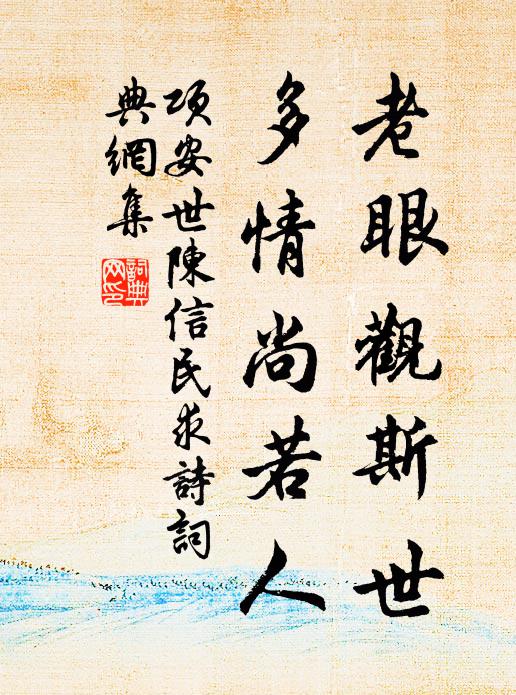 老眼觀斯世
多情尚若人
項安世陳信民求詩詞
典網集
詞典
网印